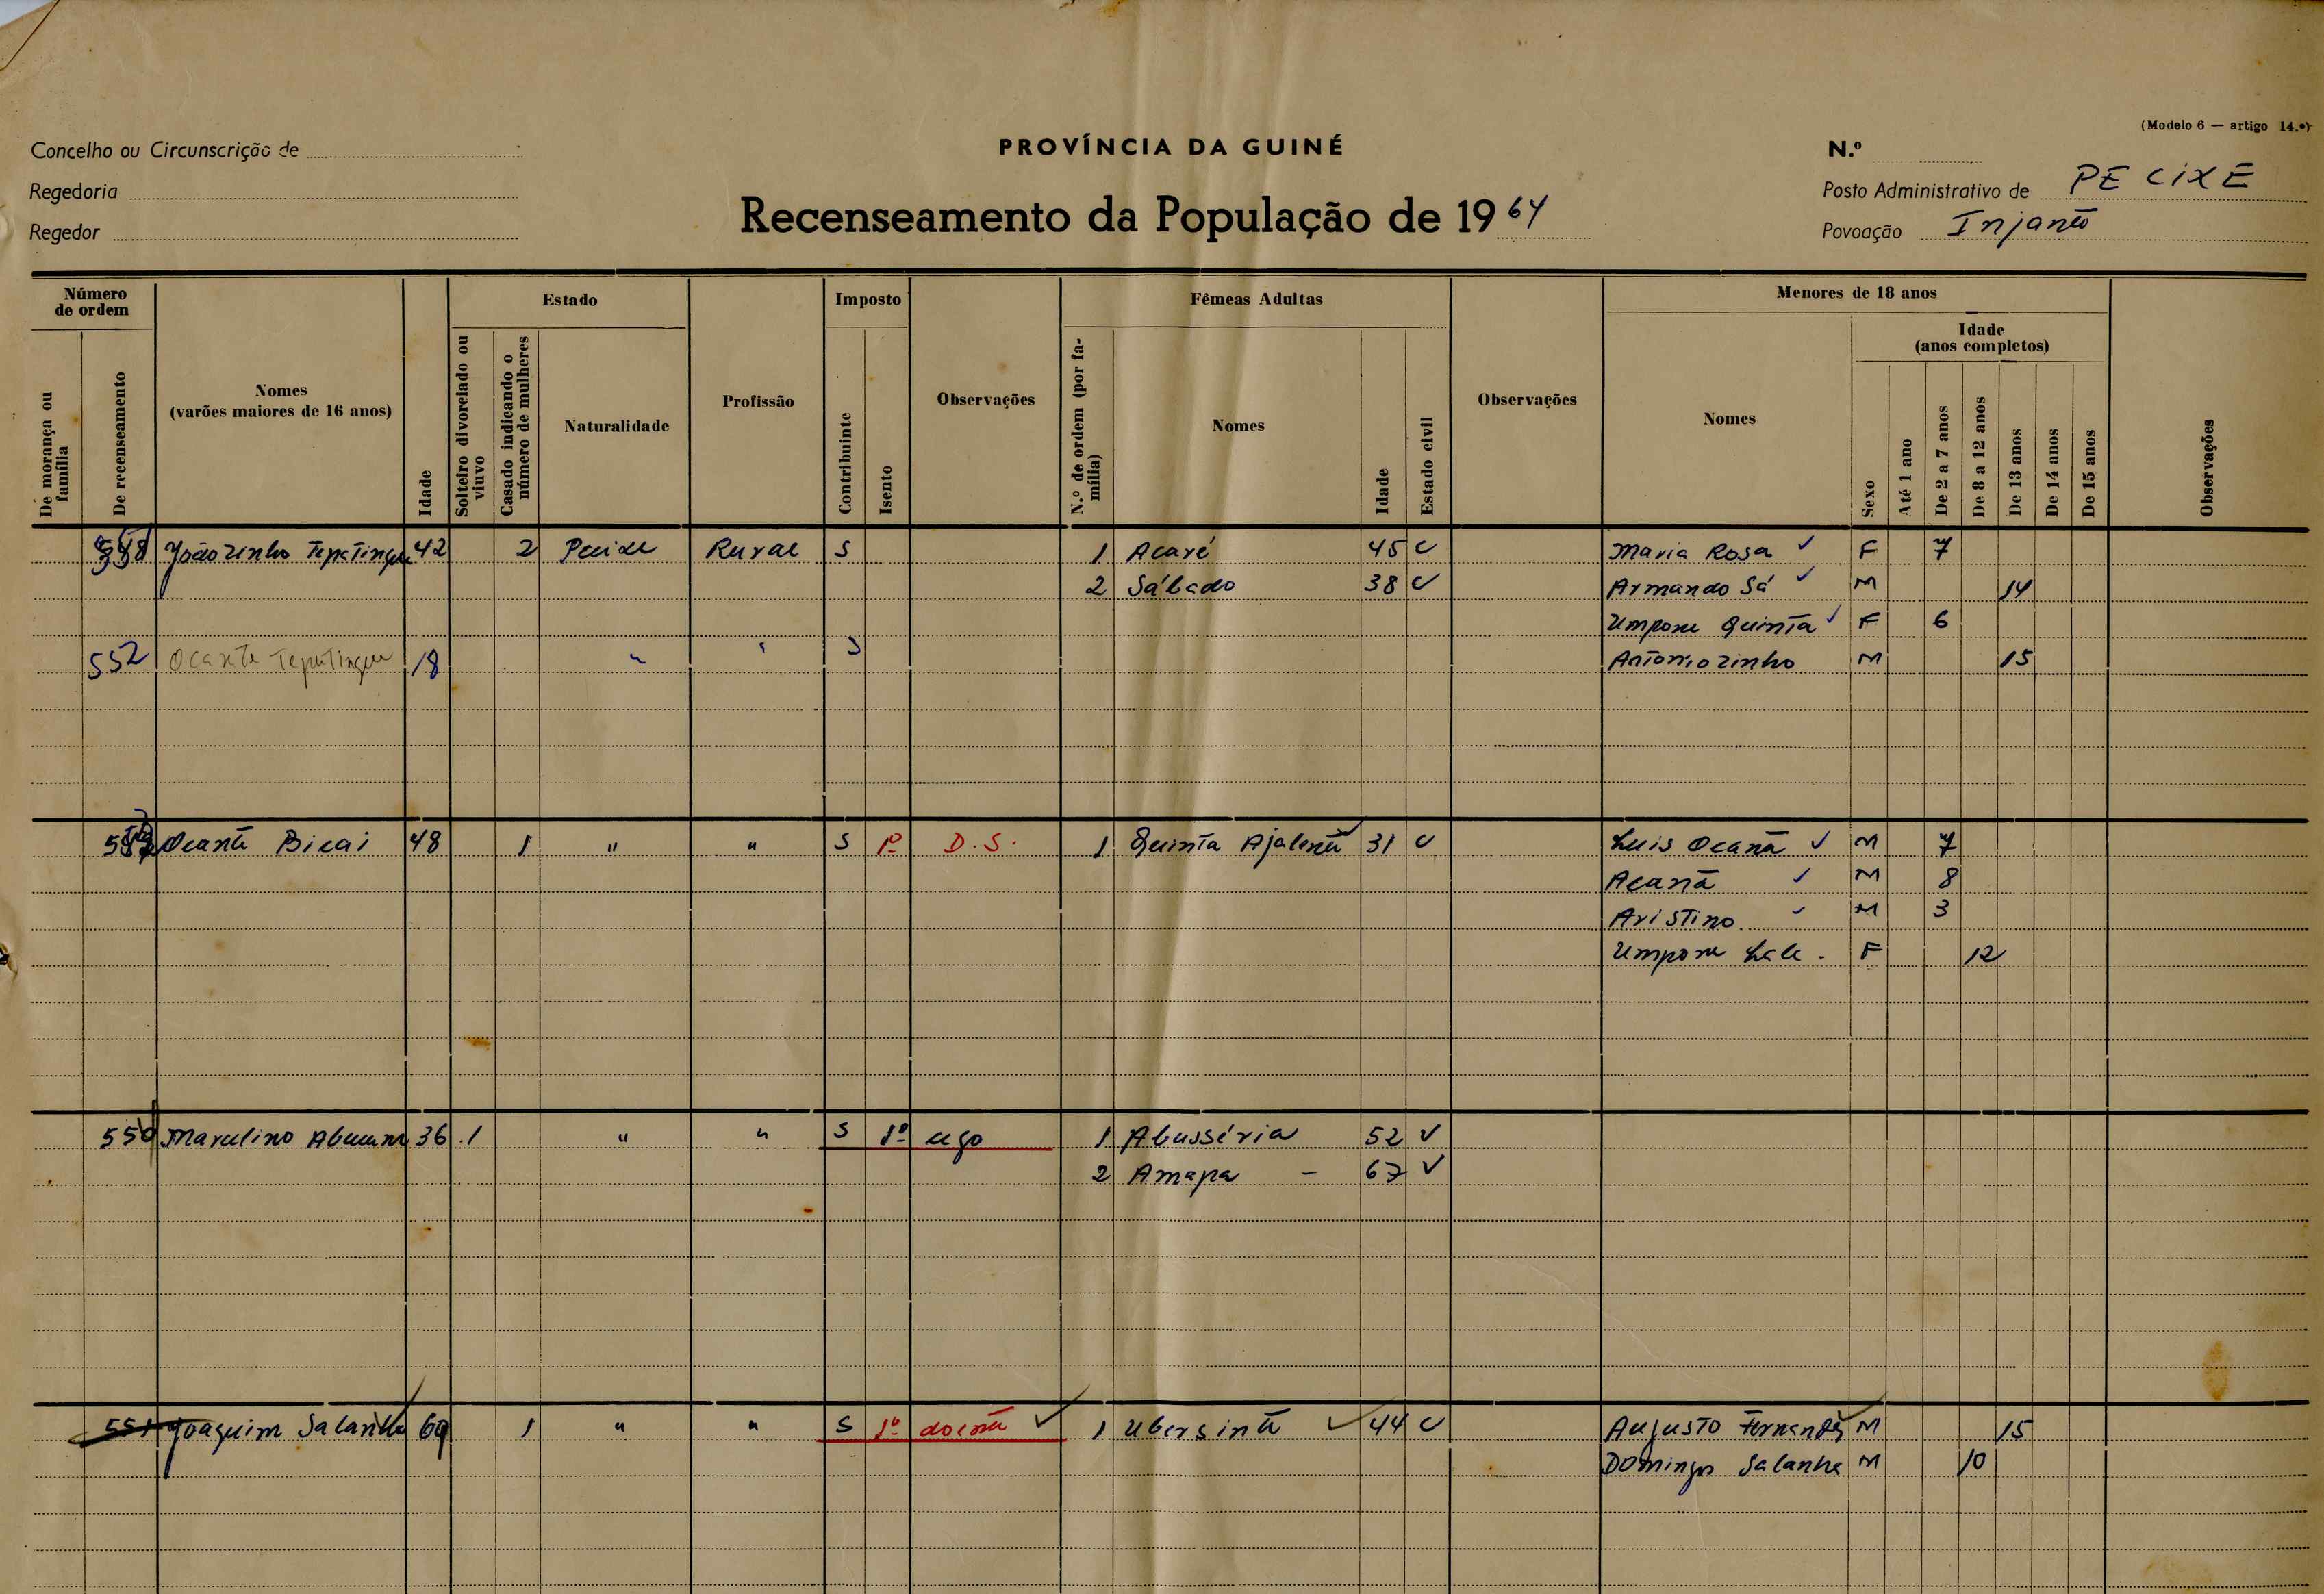 (Modelo 6 — artigo 14.º)
Concelho ou Circunscrição de
PROVÍNCIA DA GUINÉ
N.º
Regedoria
Recenseamento da População de 1964
Posto Administrativo de PECIXE
Regedor
Povoação
Número de ordem
Estado
Imposto
Fêmeas Adultas
Menores de 18 anos
De morança ou família
De recenseamento
Nomes
(varões maiores de 16 anos)
Idade
Solteiro divorciado ou viuvo
Casado indicando o número de mulheres
Naturalidade
Profissão
Contribuinte
Isento
Observações
N.º de ordem (por família)
Nomes
Idade
Estado civil
Observações
Nomes
Idade
(anos completos)
Sexo
Até 1 ano
De 2 a 7 anos
De 8 a 12 anos
De 13 anos
De 14 anos
De 15 anos
Observações
Joãozinho 42 2 Rural S 1 Acaré 45 C Maria Rosa F 7
2 Sábado 38 C Armando Sá M 14
Quinta F 6
552 Ocante 18 " " S Antoniozinho M 15
48 1 " " S 1º D.S. 1 Quinta 31 C Luis M 7
M 8
Aristino M 3
F 12
36 1 " " S 1º cego 1 Abusséria 52 V
2 Amapa - 67 V
551 Joaquim 1 " " S 1º doente 1 44 C Augusto Fernandes M 15
Domingos Salanha M 10